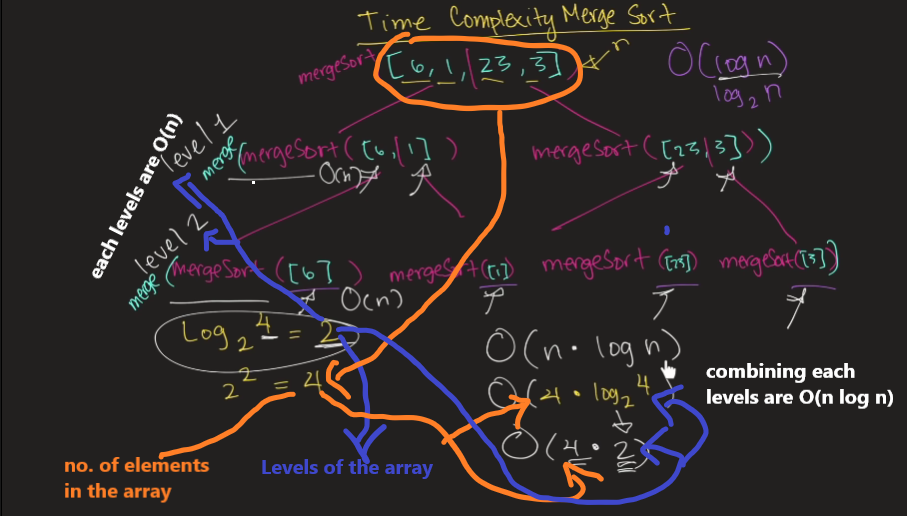 Time Complexity Merge Sort
mergeSort [6, 1, | 23, 3] ) n
O(log n)
log₂ n
each levels are O(n)
level 1
merge (mergeSort ( [6, | 1] )
mergeSort ( [23 | 3] ) )
O(n)
level 2
merge (mergeSort ( [6] ) mergeSort ([1]) mergeSort ([23]) mergeSort ([3]) )
O(n)
Log₂ 4 = 2
2² = 4
O(n · log n)
O(4 · log₂ 4)
O(4 · 2)
combining each
levels are O(n log n)
no. of elements
in the array
Levels of the array